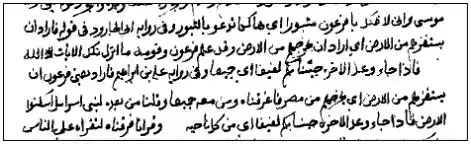 موسى واني لاظنك يا فرعون مثبورا اي هالكا تدعو بالثبور وفي رواية ابي الجارود في قوله فاراد ان
يستفزهم من الارض اي اراد ان يخرجهم من الارض وقد علم فرعون وقومه ما انزل تلك الايات الا الله
فاذا جاء وعد الاخرة جئنا بكم لفيفا اي جميعا وفي رواية علي بن ابراهيم فاراد يعني فرعون ان
يستفزهم من الارض اي يخرجهم من مصر فاغرقناه ومن معه جميعا وقلنا من بعده لبني اسرائيل اسكنوا
الارض فاذا جاء وعد الاخرة جئنا بكم لفيفا اي من كل ناحية وقرانا فرقناه لتقراه على الناس